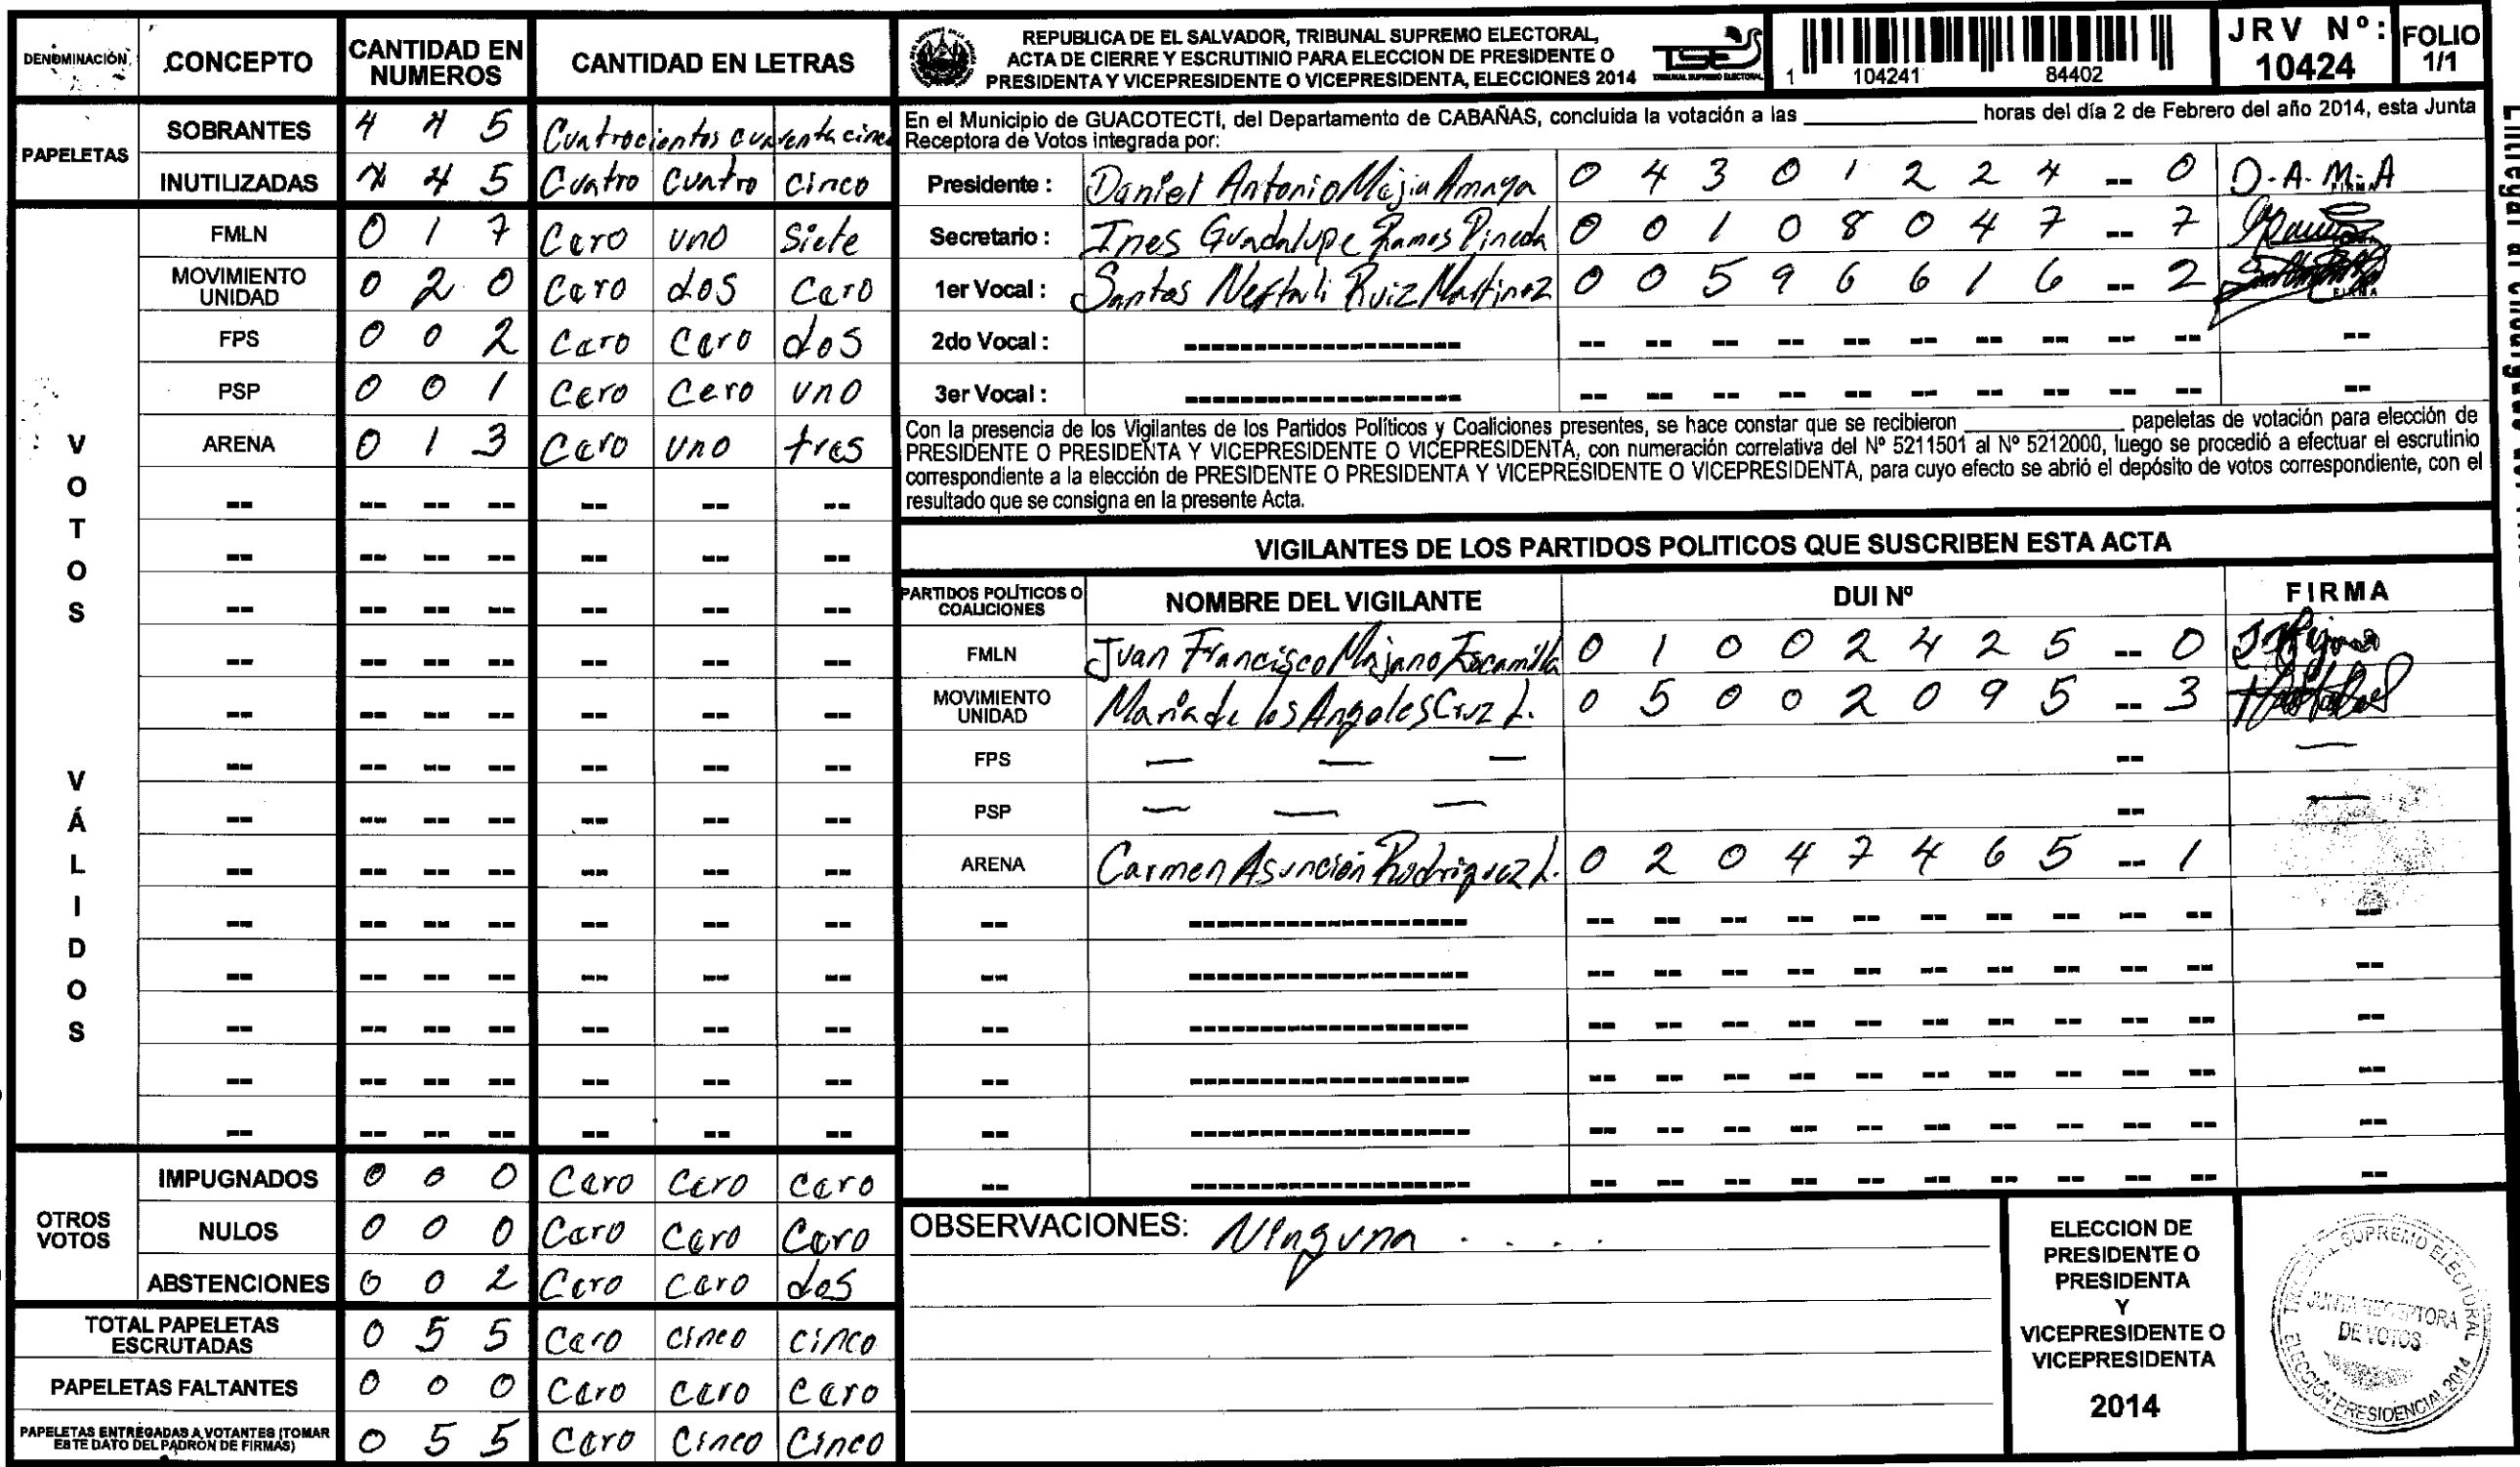 DENOMINACIÓN CONCEPTO CANTIDAD EN NUMEROS CANTIDAD EN LETRAS
PAPELETAS
SOBRANTES 4 4 5 Cuatrocientos cuarenta cinco
INUTILIZADAS 4 4 5 Cuatro Cuatro Cinco
VOTOS VÁLIDOS
FMLN 0 1 7 Cero uno Siete
MOVIMIENTO UNIDAD 0 2 0 Cero dos Cero
FPS 0 0 2 Cero Cero dos
PSP 0 0 1 Cero Cero uno
ARENA 0 1 3 Cero uno tres
-- -- -- -- -- -- --
-- -- -- -- -- -- --
-- -- -- -- -- -- --
-- -- -- -- -- -- --
-- -- -- -- -- -- --
-- -- -- -- -- -- --
-- -- -- -- -- -- --
-- -- -- -- -- -- --
-- -- -- -- -- -- --
-- -- -- -- -- -- --
-- -- -- -- -- -- --
-- -- -- -- -- -- --
-- -- -- -- -- -- --
OTROS VOTOS
IMPUGNADOS 0 0 0 Cero Cero cero
NULOS 0 0 0 Cero Cero Cero
ABSTENCIONES 0 0 2 Cero cero dos
TOTAL PAPELETAS ESCRUTADAS 0 5 5 Cero cinco cinco
PAPELETAS FALTANTES 0 0 0 Cero cero cero
PAPELETAS ENTREGADAS A VOTANTES (TOMAR ESTE DATO DEL PADRON DE FIRMAS) 0 5 5 Cero Cinco Cinco
REPUBLICA DE EL SALVADOR, TRIBUNAL SUPREMO ELECTORAL,
ACTA DE CIERRE Y ESCRUTINIO PARA ELECCION DE PRESIDENTE O
PRESIDENTA Y VICEPRESIDENTE O VICEPRESIDENTA, ELECCIONES 2014
TSE
TRIBUNAL SUPREMO ELECTORAL
1 104241 84402
JRV Nº: 10424
FOLIO 1/1
En el Municipio de GUACOTECTI, del Departamento de CABAÑAS, concluida la votación a las ____ horas del día 2 de Febrero del año 2014, esta Junta
Receptora de Votos integrada por:
Presidente : Daniel Antonio Mejia Amaya 0 4 3 0 1 2 2 4 -- 0 D.A.M.A
Secretario : Ines Guadalupe Ramos Pineda 0 0 1 0 8 0 4 7 -- 7
1er Vocal : Santos Neftali Ruiz Martinez 0 0 5 9 6 6 1 6 -- 2 FIRMA
2do Vocal : -------------------- -- -- -- -- -- -- -- -- -- -- --
3er Vocal : -------------------- -- -- -- -- -- -- -- -- -- -- --
Con la presencia de los Vigilantes de los Partidos Políticos y Coaliciones presentes, se hace constar que se recibieron ____ papeletas de votación para elección de
PRESIDENTE O PRESIDENTA Y VICEPRESIDENTE O VICEPRESIDENTA, con numeración correlativa del Nº 5211501 al Nº 5212000, luego se procedió a efectuar el escrutinio
correspondiente a la elección de PRESIDENTE O PRESIDENTA Y VICEPRESIDENTE O VICEPRESIDENTA, para cuyo efecto se abrió el depósito de votos correspondiente, con el
resultado que se consigna en la presente Acta.
VIGILANTES DE LOS PARTIDOS POLITICOS QUE SUSCRIBEN ESTA ACTA
PARTIDOS POLÍTICOS O COALICIONES NOMBRE DEL VIGILANTE DUI Nº FIRMA
FMLN Juan Francisco Majano Escamilla 0 1 0 0 2 4 2 5 -- 0
MOVIMIENTO UNIDAD Maria de los Angeles Cruz L. 0 5 0 0 2 0 9 5 -- 3
FPS — — — -- —
PSP — — — -- —
ARENA Carmen Asunción Rodriguez L. 0 2 0 4 7 4 6 5 -- 1
-- -------------------- -- -- -- -- -- -- -- -- -- -- --
-- -------------------- -- -- -- -- -- -- -- -- -- -- --
-- -------------------- -- -- -- -- -- -- -- -- -- -- --
-- -------------------- -- -- -- -- -- -- -- -- -- -- --
-- -------------------- -- -- -- -- -- -- -- -- -- -- --
-- -------------------- -- -- -- -- -- -- -- -- -- -- --
OBSERVACIONES: Ninguna . . . .
ELECCION DE
PRESIDENTE O
PRESIDENTA
Y
VICEPRESIDENTE O
VICEPRESIDENTA
2014
TRIBUNAL SUPREMO ELECTORAL
JUNTA RECEPTORA
DE VOTOS
ELECCIÓN PRESIDENCIAL 2014